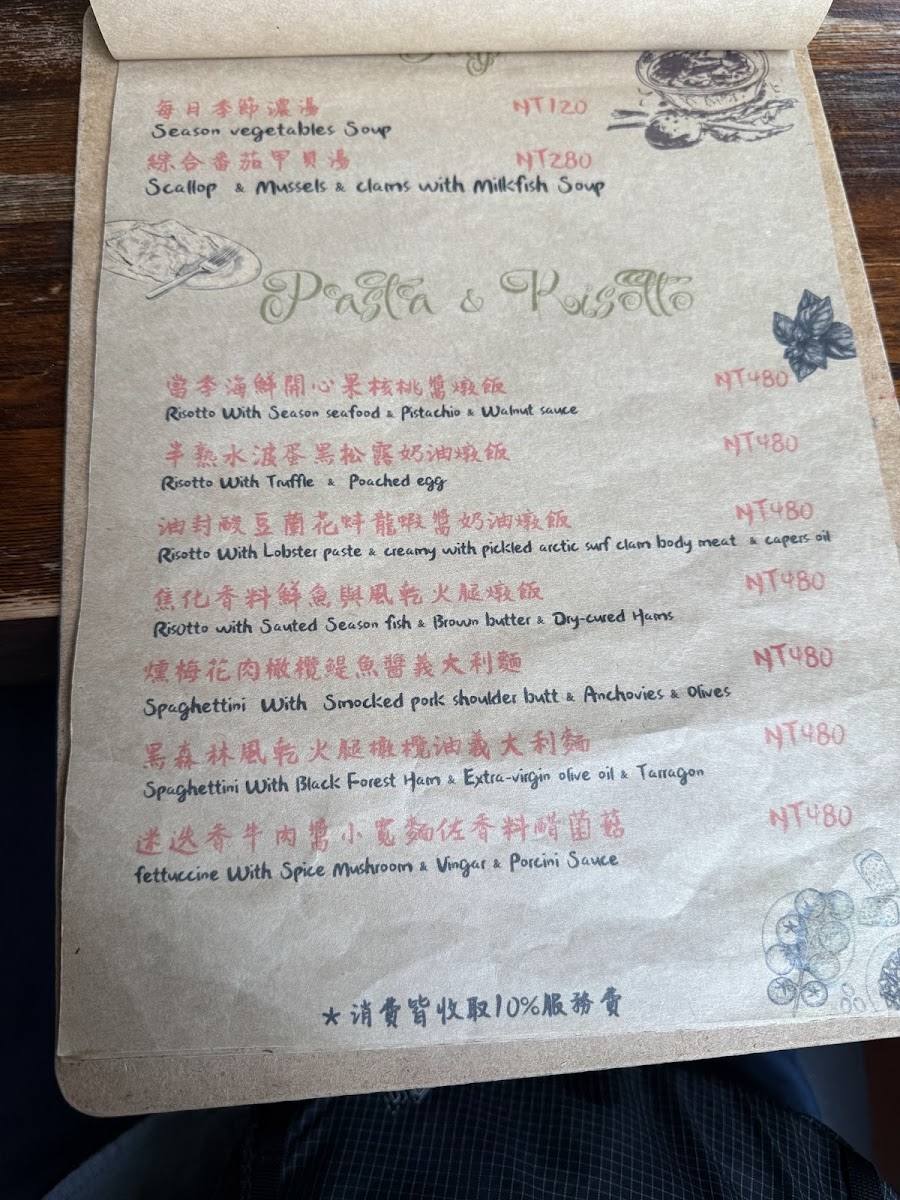 每日季節濃湯 NT120
Season vegetables Soup
綜合番茄甲貝湯 NT280
Scallop & Mussels & clams with Milkfish Soup
Pasta & Risotto
當季海鮮開心果核桃醬燉飯 NT480
Risotto With Season seafood & Pistachio & Walnut sauce
半熟水波蛋黑松露奶油燉飯 NT480
Risotto With Truffle & Poached egg
油封酸豆蘭花蚌龍蝦醬奶油燉飯 NT480
Risotto With Lobster paste & creamy with pickled arctic surf clam body meat & capers oil
焦化香料鮮魚與風乾火腿燉飯 NT480
Risotto with Sauted Season fish & Brown butter & Dry-cured Hams
燻梅花肉橄欖鯷魚醬義大利麵 NT480
Spaghettini With Smocked pork shoulder butt & Anchovies & Olives
黑森林風乾火腿橄欖油義大利麵 NT480
Spaghettini With Black Forest Ham & Extra-virgin olive oil & Tarragon
迷迭香牛肉醬小寬麵佐香料醋菌菇 NT480
fettuccine With Spice Mushroom & Vingar & Porcini Sauce
★消費皆收取10%服務費